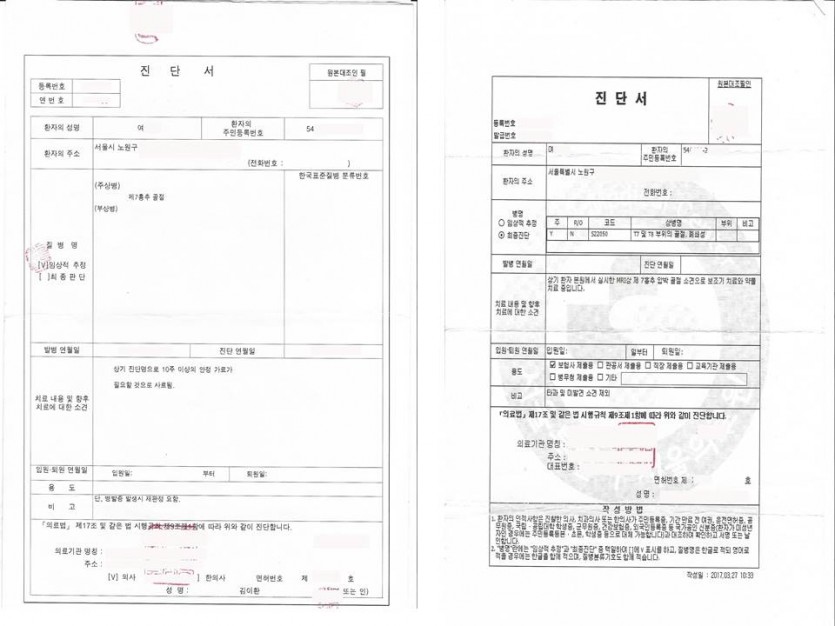 진 단 서
원본대조인 필
등록번호
연 번 호
환자의 성명
여
환자의
주민등록번호
54
환자의 주소
서울시 노원구
(전화번호 : )
한국표준질병 분류번호
(주상병)
제7흉추 골절
(부상병)
질 병 명
[V]임상적 추정
[ ]최 종 판 단
발병 연월일
진단 연월일
치료 내용 및 향후
치료에 대한 소견
상기 진단명으로 10주 이상의 안정 가료가
필요할 것으로 사료됨.
입원·퇴원 연월일
입원일:
부터
퇴원일:
용 도
비 고
단, 병발증 발생시 재판정 요함.
「의료법」 제17조 및 같은 법 시행규칙 제9조제1항에 따라 위와 같이 진단합니다.
의료기관 명칭 :
주소 :
[V] 의사
] 한의사
면허번호
제
호
성 명 :
김이환
또는 인)
진단서
원본대조필인
등록번호
발급번호
환자의 성명
환자의
주민등록번호
54/ -2
환자의 주소
서울특별시 노원구
전화번호 :
병명
○ 임상적 추정
◉ 최종진단
주 R/O 코드 상병명 부위 비고
Y N S22050 T7 및 T8 부위의 골절, 폐쇄성
발병 연월일
진단 연월일
치료 내용 및 향후
치료에 대한 소견
상기 환자 본원에서 실시한 MRI상 제 7흉추 압박 골절 소견으로 보조기 치료와 약물
치료 중입니다.
입원·퇴원 연월일
입원일:
일부터
퇴원일:
용도
☑ 보험사 제출용 □ 관공서 제출용 □ 직장 제출용 □ 교육기관 제출용
□ 병무청 제출용 □ 기타
비고
타과 및 미발견 소견 제외
「의료법」 제17조 및 같은 법 시행규칙 제9조제1항에 따라 위와 같이 진단합니다.
의료기관 명칭 :
주소 :
대표번호 :
면허번호 제 : 호
성 명 :
작 성 방 법
작성일 : 2017.03.27 10:33